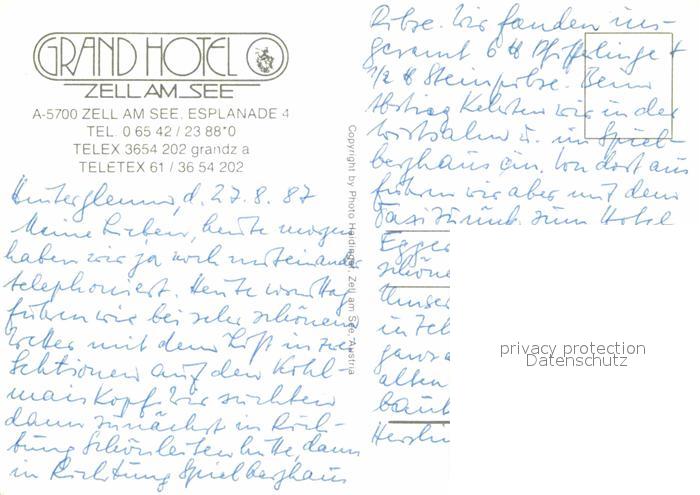 GRAND HOTEL
ZELL AM SEE
A-5700 ZELL AM SEE, ESPLANADE 4
TEL. 0 65 42 / 23 88*0
TELEX 3654 202 grandz a
TELETEX 61 / 36 54 202
Hinterglemm, d. 27.8.87
Meine Lieben, heute morgen
haben wir ja noch miteinander
telephoniert. Heute vormittag
fuhren wir bei sehr schönem
Wetter mit dem Lift in zwei
Sektionen auf den Kohl-
maiskopf. Wir suchten
dann zunächst in Rich-
tung Schönleitenhütte, dann
in Richtung Spielberghaus
Copyright by Photo Haidinger, Zell am See, Austria
Pilze. Wir fanden ins-
gesamt 6 ℔ Pfifferlinge +
1/2 ℔ Steinpilze. Beim
Abstieg kehrten wir in der
u. im Spiel-
berghaus ein. Von dort aus
fuhren wir aber mit dem
Taxi zurück zum Hotel
Egger
schöne
Unser
in Zell
ganz
alten
baut
Herzli
privacy protection
Datenschutz